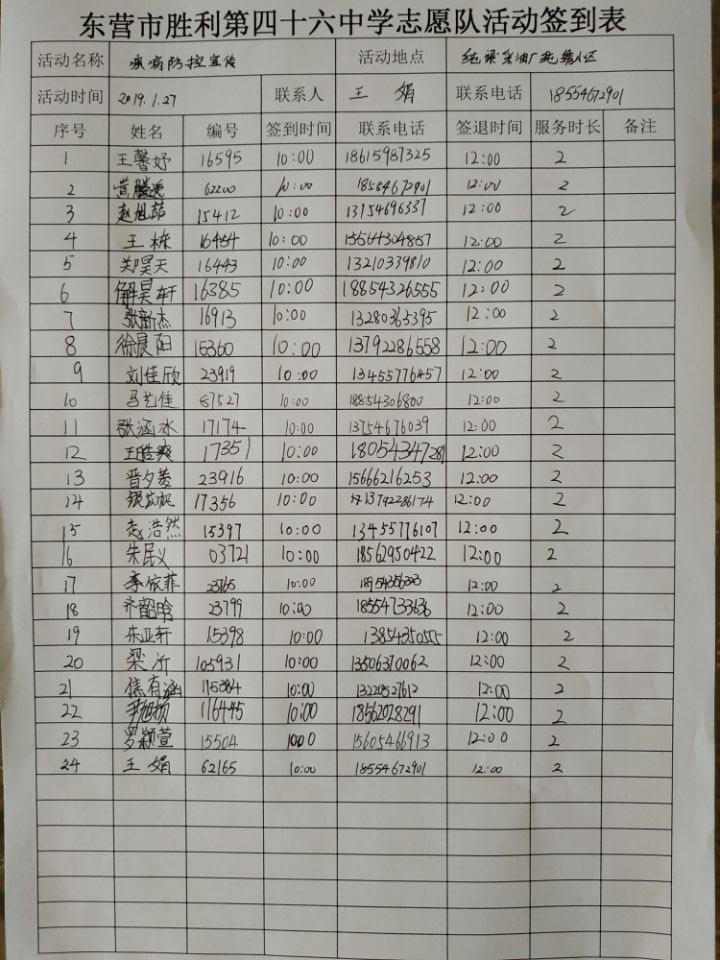 东营市胜利第四十六中学志愿队活动签到表
活动名称 疾病防控宣传 活动地点 纯梁采油厂
活动时间 2019.1.27 联系人 王娟 联系电话 18554672901
序号 姓名 编号 签到时间 联系电话 签退时间 服务时长 备注
1 王馨妤 16595 10:00 18615987325 12:00 2
2 62200 10:00 18554672901 12:00 2
3 赵旭喆 15412 10:00 13754696337 12:00 2
4 王栋 16484 10:00 15564304857 12:00 2
5 郑昊天 16443 10:00 13210339810 12:00 2
6 解昊轩 16385 10:00 18854326555 12:00 2
7 张新杰 16913 10:00 13280365395 12:00 2
8 徐晨阳 15360 10:00 13792286558 12:00 2
9 刘佳欣 23919 10:00 13455776457 12:00 2
10 马艺佳 87527 10:00 18854306800 12:00 2
11 张涵冰 17174 10:00 13754676039 12:00 2
12 王皓爽 17351 10:00 18054347281 12:00 2
13 晋夕菱 23916 10:00 15666216253 12:00 2
14 17356 10:00 13792286174 12:00 2
15 志浩然 15397 10:00 13455776107 12:00 2
16 朱民义 03721 10:00 18562950422 12:00 2
17 李依菲 23765 10:00 12:00 2
18 齐韶晗 23799 10:00 18554733636 12:00 2
19 朱亚轩 15398 10:00 1385435055 12:00 2
20 梁沂 105931 10:00 13506370062 12:00 2
21 焦有涵 10:00 13220527612 12:00 2
22 尹旭杨 116445 10:00 18562028291 12:00 2
23 罗颖萱 15504 1000 15605466913 12:00 2
24 王娟 62165 10:00 18554672901 12:00 2